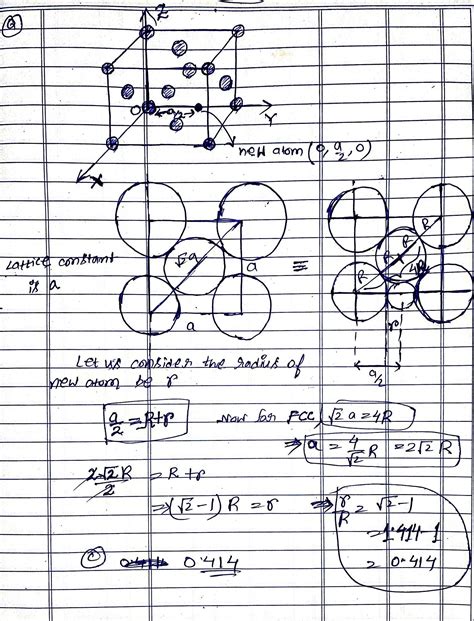 Q
Z
O a/2 Y
new atom (0, a/2, 0)
X
Lattice constant
is a
√2a
a
a
≡
R
R
R
4R
r
a/2
Let us consider the radius of
new atom be r
a/2 = R+r Now for FCC, √2 a = 4R
⇒ a = 4/√2 R = 2√2 R
2√2R/2 = R+r
⇒ (√2-1) R = r ⇒ r/R = √2-1
= 1.414-1
= 0.414
(C) 0.414